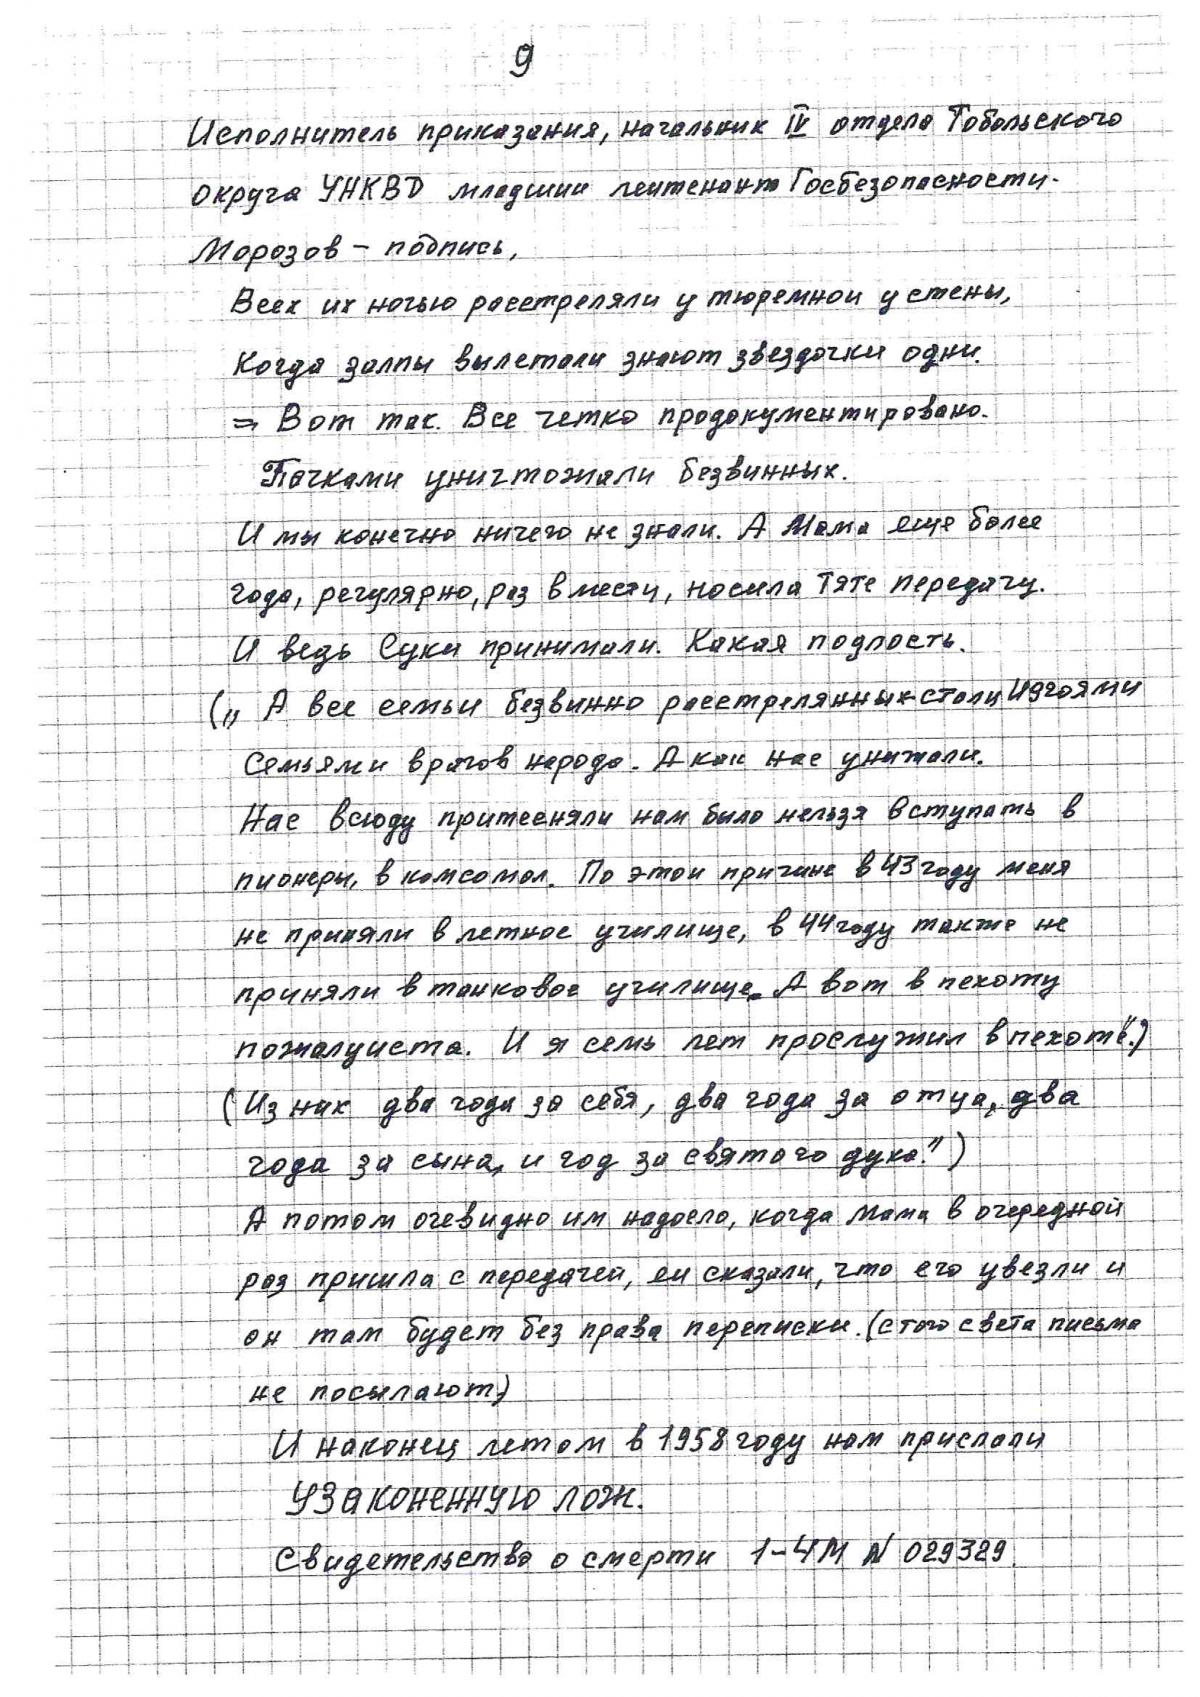 9
Исполнитель приказания, начальник IV отдела Тобольского
округа УНКВД младшии леитенант Госбезопасности.
Морозов – подпись,
Всех их ночью расстреляли у тюремнои у стены,
Когда залпы вылетали знают звездочки одни.
= Вот так. Все четко продокументировано.
Пачками уничтожали безвинных.
И мы конечно ничего не знали. А Мама еще более
года, регулярно, раз в месяц, носила Тяте передачу.
И ведь Суки принимали. Какая подлость.
(„ А все семьи безвинно расстрелянных стали Изгоями
Семьями врагов народа. А как нас унижали.
Нас всюду притесняли нам было нельзя вступать в
пионеры, в комсомол. По этои причине в 43 году меня
не приняли в летное училище, в 44 году также не
приняли в танковое училище. А вот в пехоту
пожалуиста. И я семь лет прослужил в пехоте".)
(Из них два года за себя, два года за отца, два
года за сына, и год за святого духа.")
А потом очевидно им надоело, когда Мама в очередной
раз пришла с передачей, еи сказали, что его увезли и
он там будет без права переписки. (с того света письма
не посылают)
И наконец летом в 1958 году нам прислали
УЗАКОНЕННУЮ ЛОЖ.
Свидетельство о смерти 1-ЧМ N 029329.